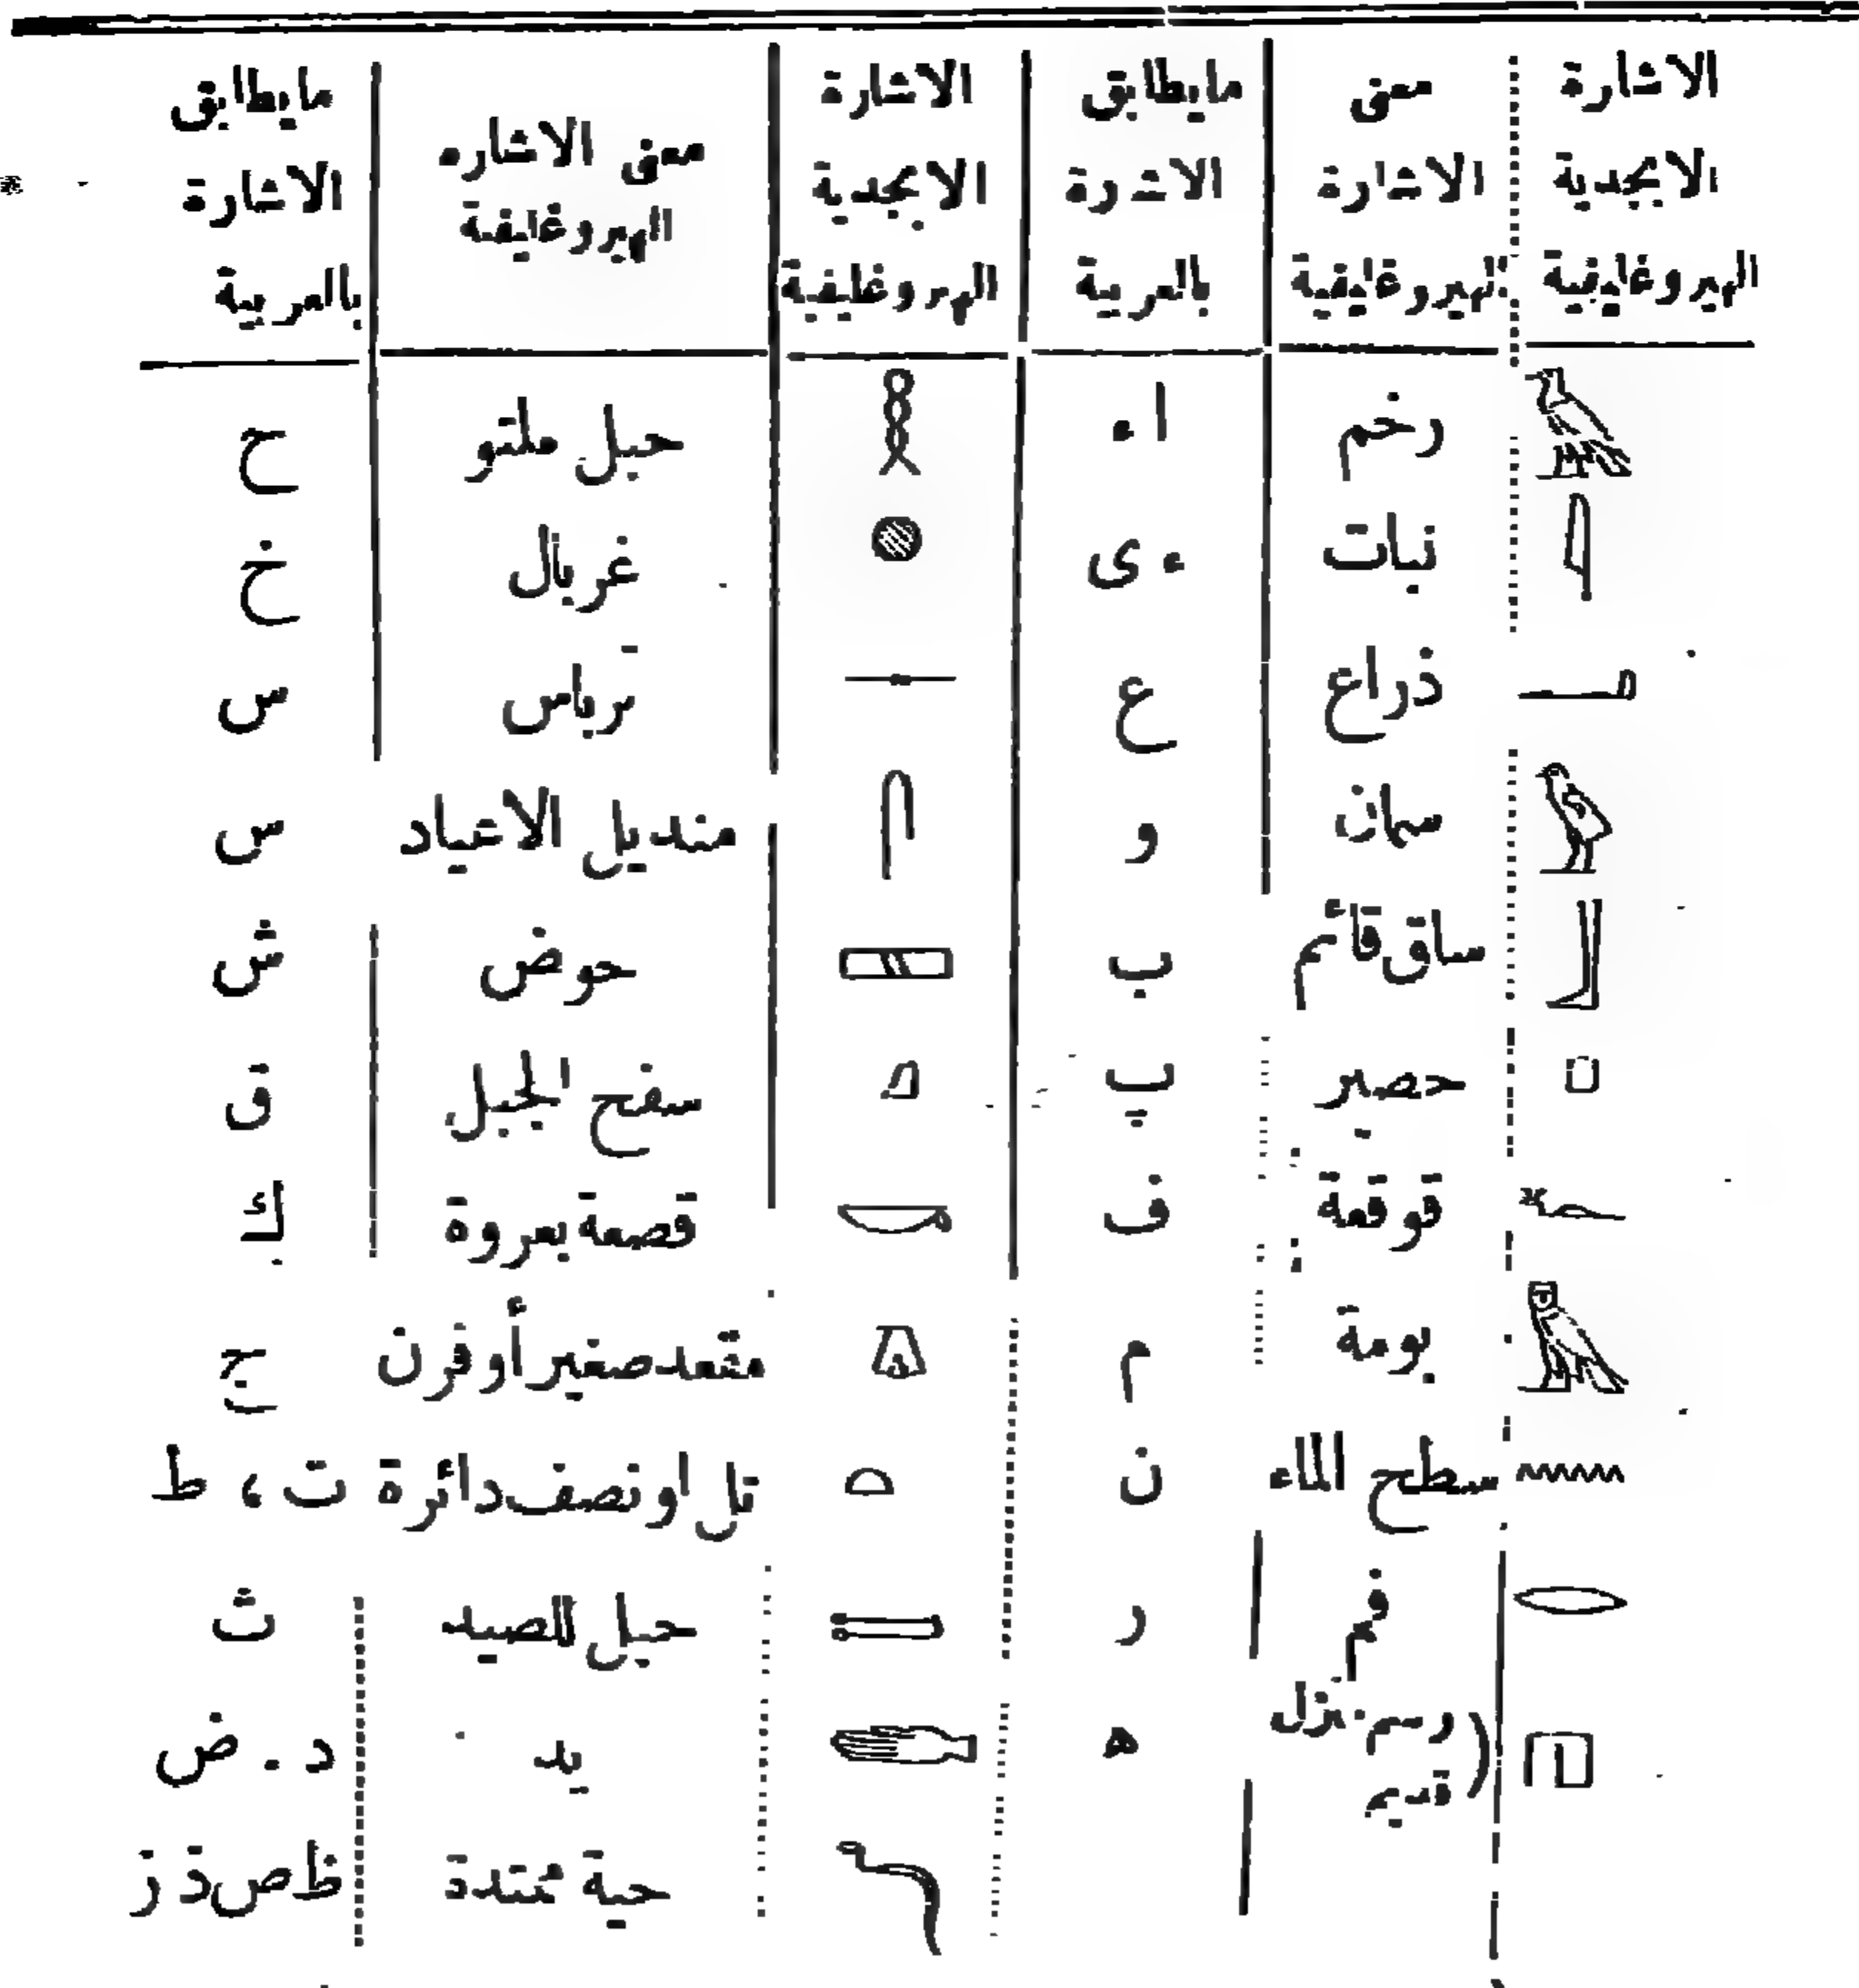 الاشارة الابجدية الهيروغليفية | معنى الاشارة الهيروغليفية | مايطابق الاشارة بالعربية | الاشارة الابجدية الهيروغليفية | معنى الاشاره الهيروغليفية | مايطابق الاشارة بالعربية
رخم | ا ء | حبل ملتو | ح
نبات | ء ى | غربال | خ
ذراع | ع | ترباس | س
سمان | و | منديل الاعياد | س
ساق قائم | ب | حوض | ش
حصير | پ | سفح الجبل | ق
قوقعة | ف | قصعة بعروة | ك
بومة | م | مقعد صغير أو فرن | ج
سطح الماء | ن | تل او نصف دائرة | ت ، ط
فم | ر | حبل للصيد | ث
( رسم منزل قديم | ه | يد | د . ض
حية ممتدة | ظ ص ذ ز